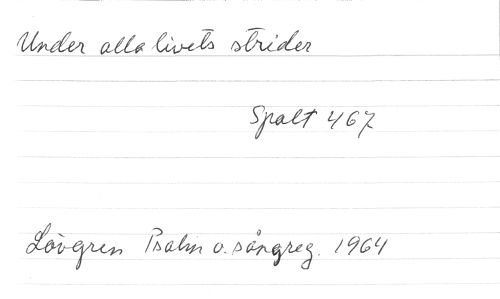 Under alla livets strider
Spalt 467
Lövgren Psalm o. sångreg. 1964